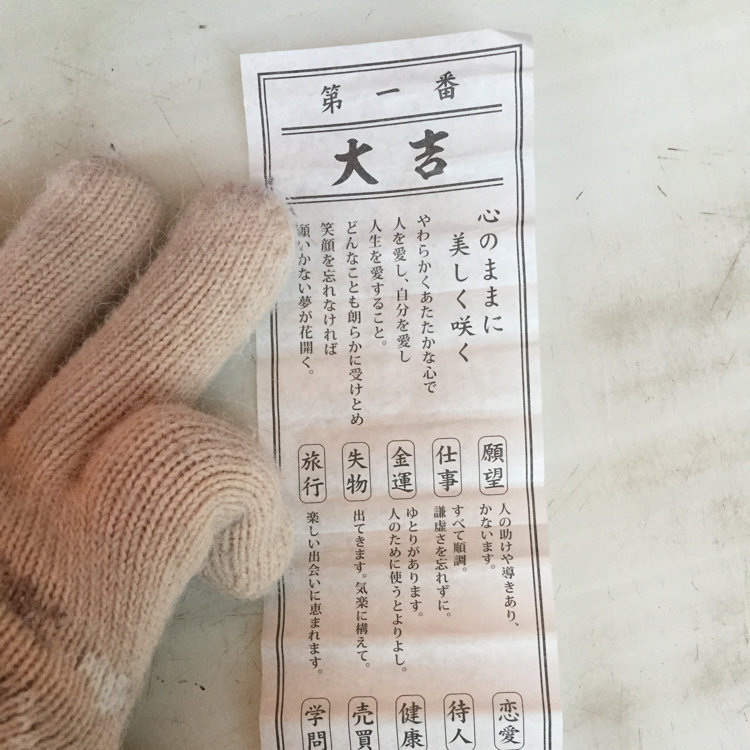 第一番
大吉
心のままに
美しく咲く
やわらかくあたたかな心で
人を愛し、自分を愛し
人生を愛すること。
どんなことも朗らかに受けとめ
笑顔を忘れなければ
願いかない夢が花開く。
願望
人の助けや導きあり、
かないます。
仕事
すべて順調。
謙虚さを忘れずに。
金運
ゆとりがあります。
人のために使うとよりよし。
失物
出てきます。気楽に構えて。
旅行
楽しい出会いに恵まれます。
恋愛
待人
健康
売買
学問